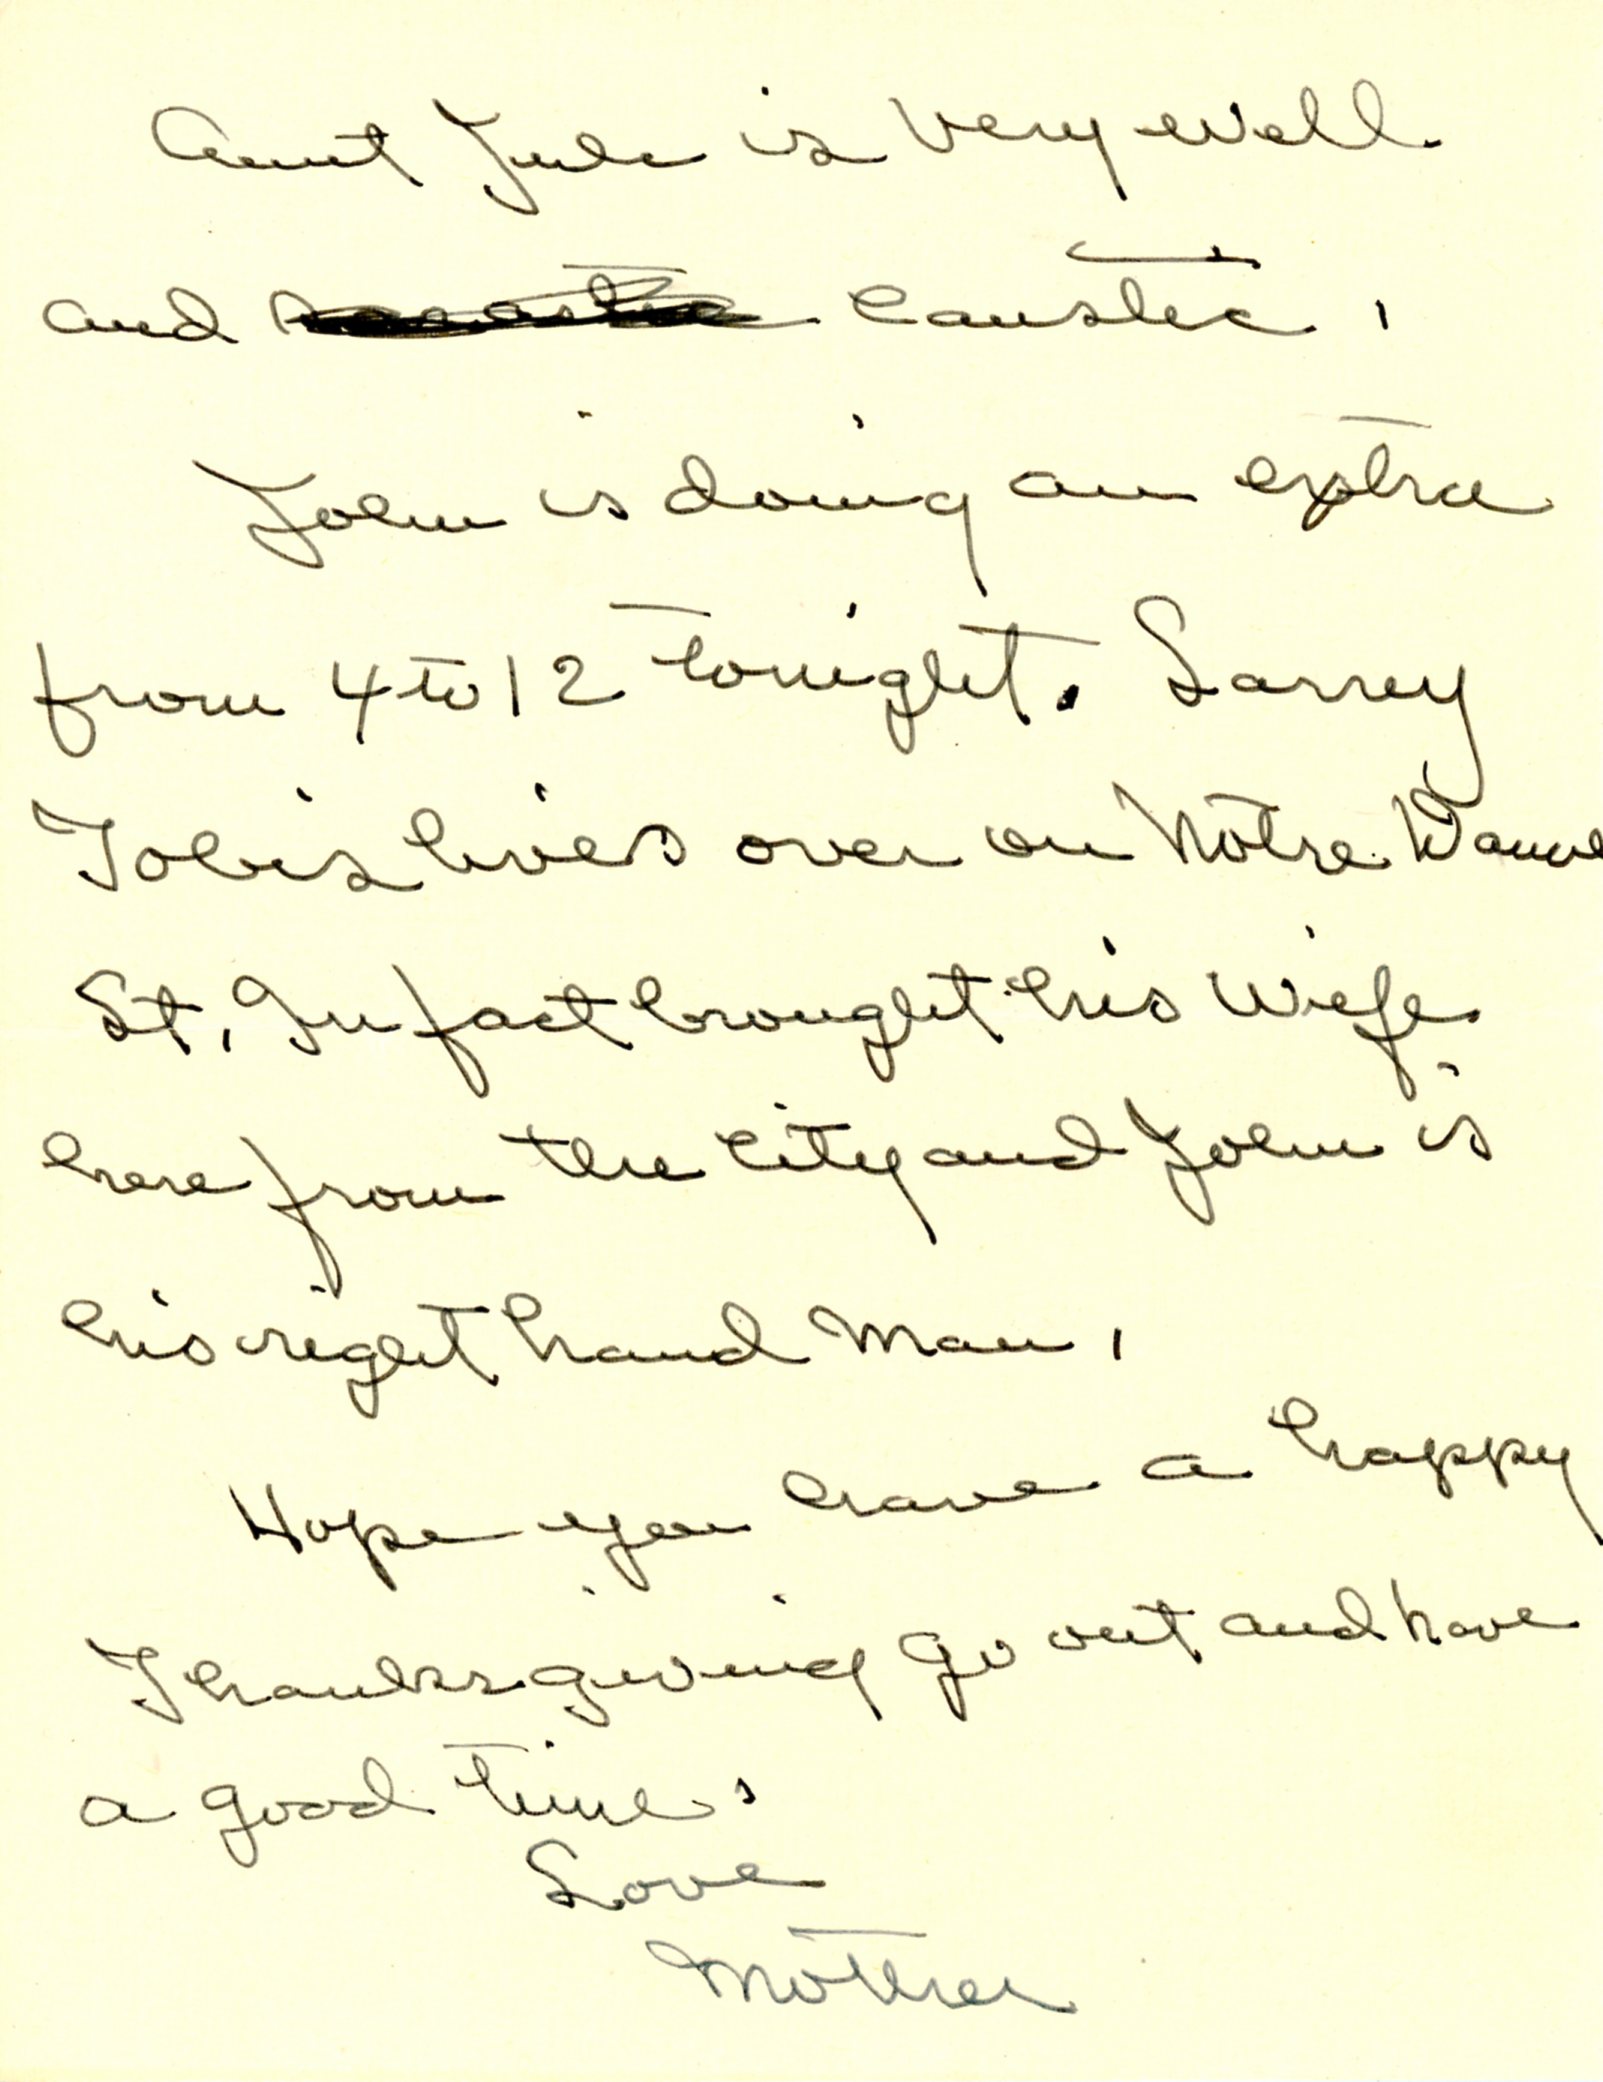 Aunt Jule is very well
and caustic.
John is doing an extra
from 4 to 12 tonight. Larrey
Tobis lives over on Notre Dame
St. In fact brought his wife
here from the city and John is
his right hand man.
Hope you have a happy
Thanksgiving go out and have
a good time.
Love
Mother